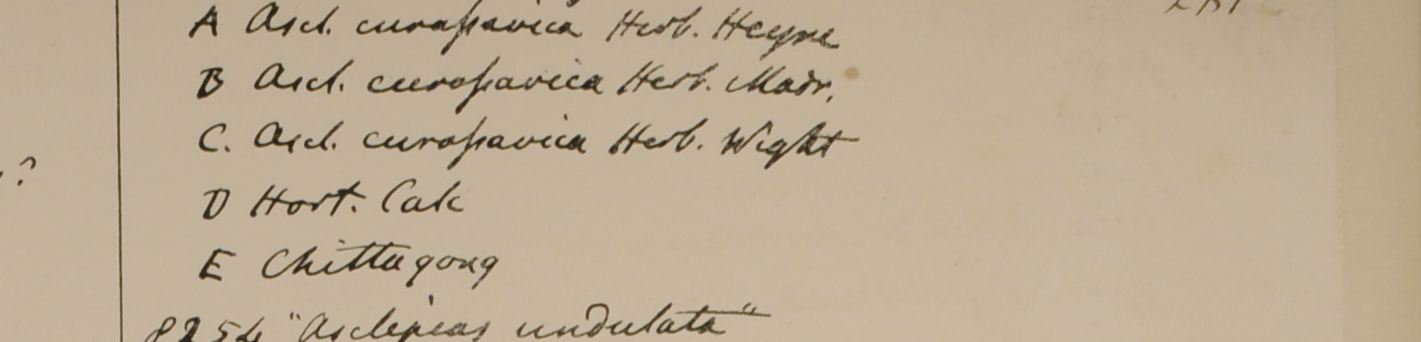 A Ascl. curassavica Herb. Heyne
B Ascl. curassavica Herb. Madr.
C. Ascl. curassavica Herb. Wight
?
D Hort. Calc
E Chittagong
8254 "Asclepias undulata"